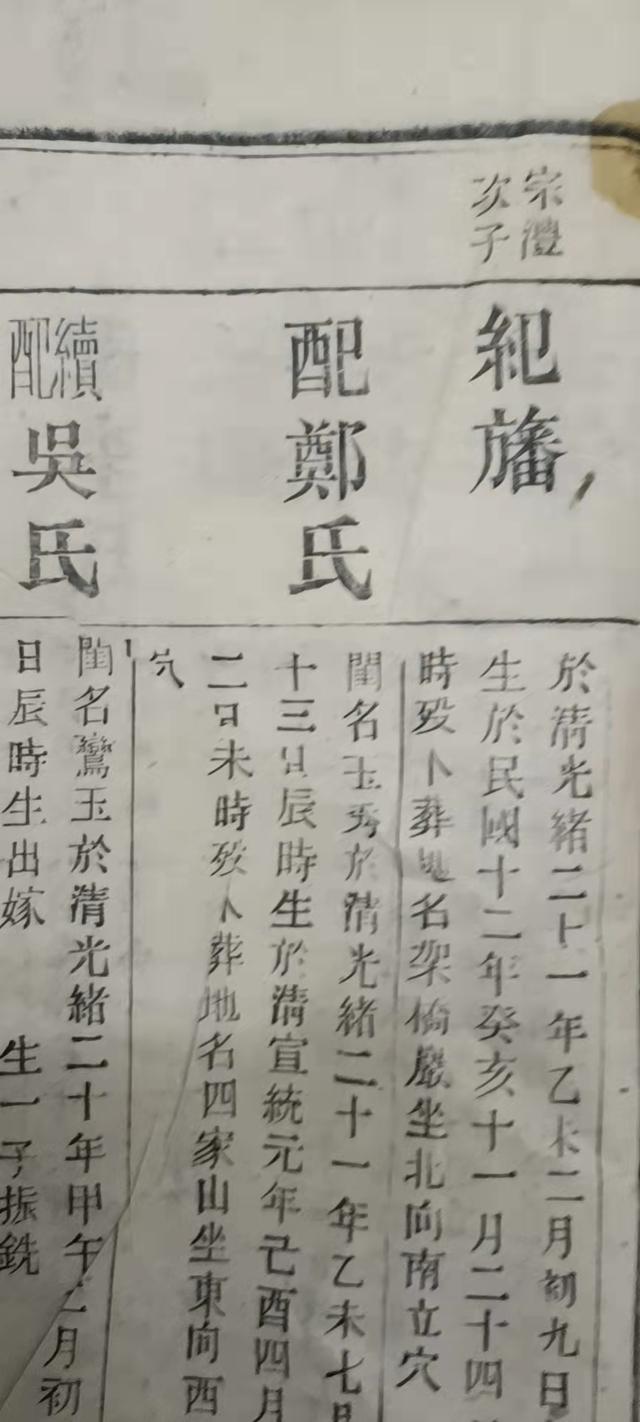 宗澧
次子
紀旛
於清光緒二十一年乙未二月初九日
生於民國十二年癸亥十一月二十四
時歿卜葬地名架橋嚴坐北向南立穴
配鄭氏
閨名玉秀於清光緒二十一年乙未七月
十三日辰時生於清宣統元年己酉四月
二日未時歿卜葬地名四家山坐東向西
穴
續配
吳氏
閨名鸞玉於清光緒二十年甲午二月初
日辰時生出嫁 生一子振銑